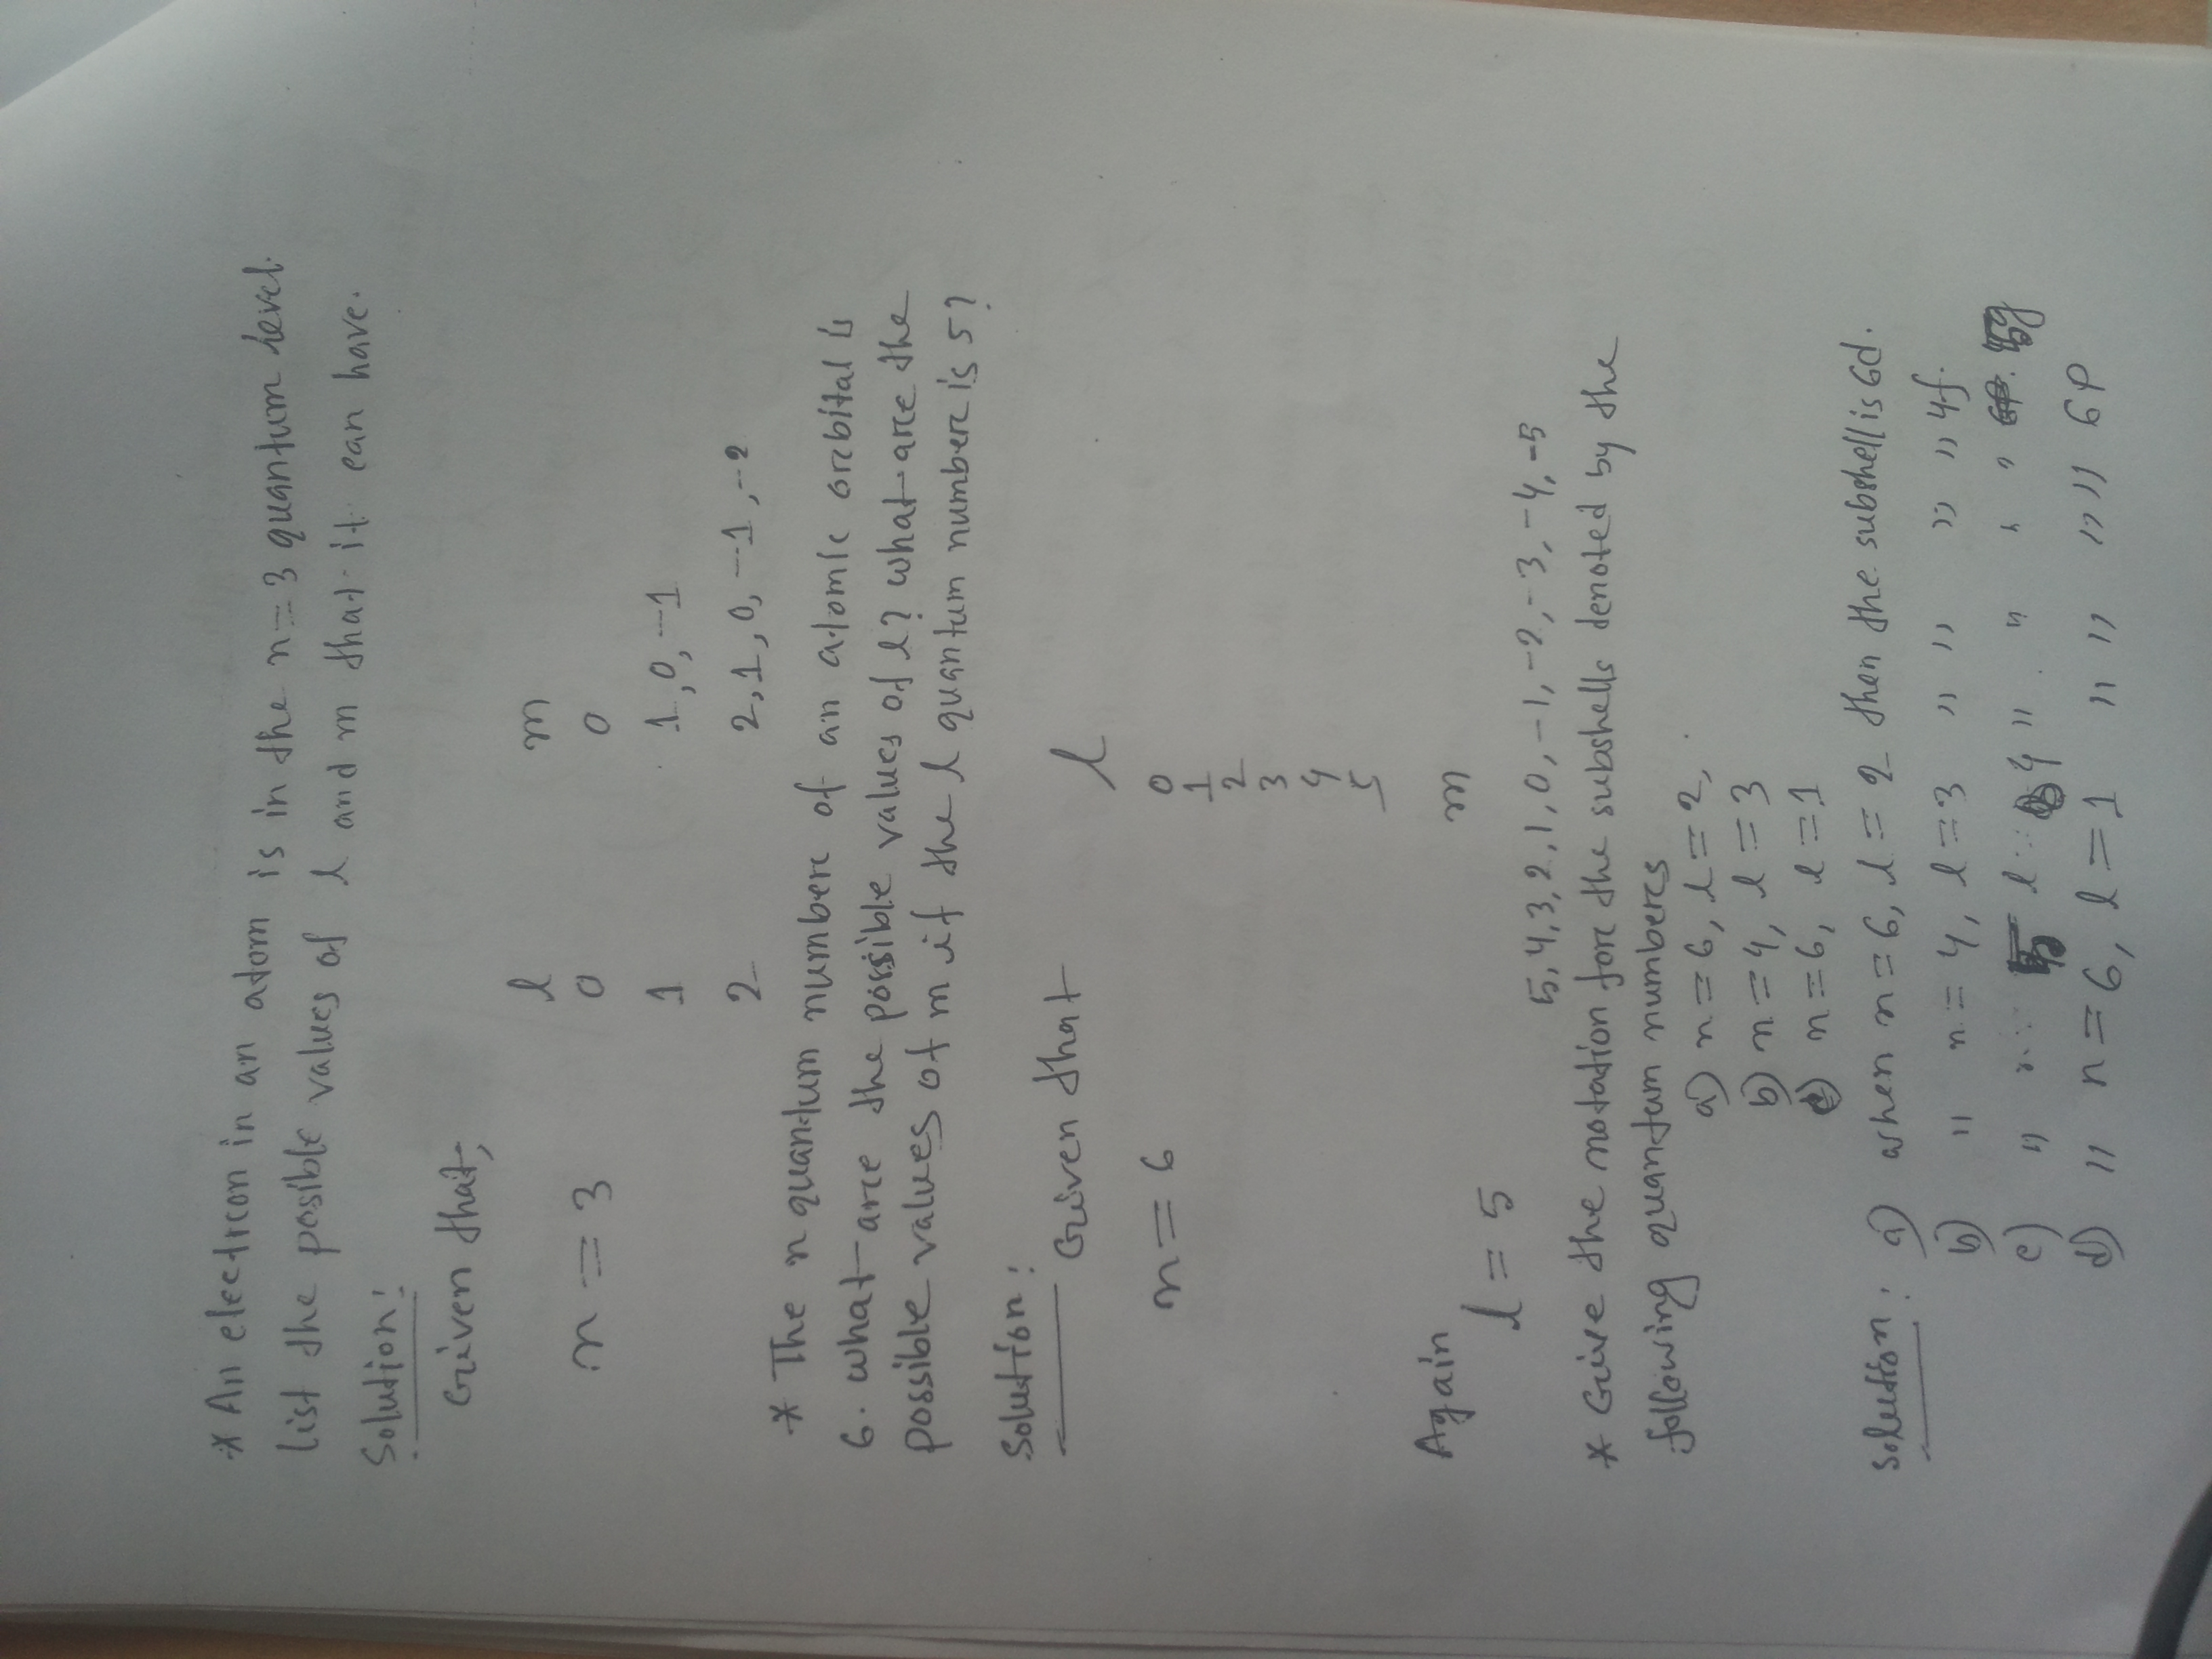 * An electron in an atom is in the n = 3 quantum level.
list the posible values of l and m that it can have.
Solution:
Given that,
l m
n = 3 0 0
1 1, 0, -1
2 2, 1, 0, -1, -2
* The n quantum number of an atomic orbital is
6. what are the possible values of l? what are the
possible values of m if the l quantum number is 5?
Solution:
Given that l
n = 6 0
1
2
3
4
5
Again m
l = 5
5, 4, 3, 2, 1, 0, -1, -2, -3, -4, -5
* Give the notation for the subshells denoted by the
following quantum numbers
a) n = 6, l = 2,
b) n = 4, l = 3
n = 6, l = 1
Solution: a) when n = 6, l = 2 then the subshell is 6d.
b) " n = 4, l = 3 " " " " 4f.
c) " n 5 l 4 " " " " 5g
d) " n = 6, l = 1 " " " " 6p